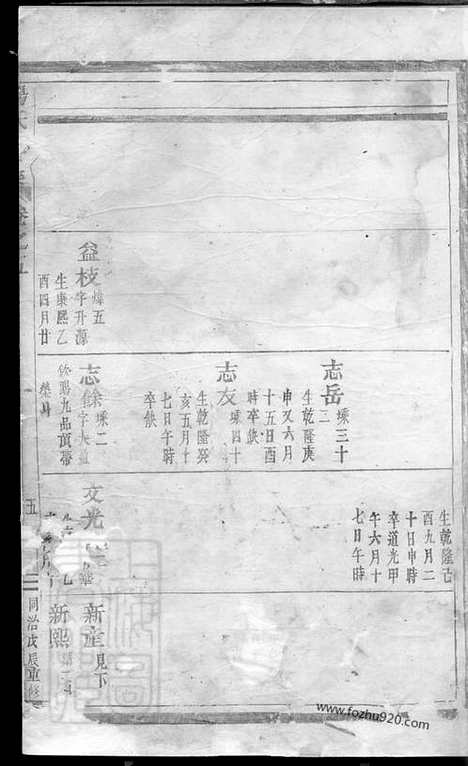 益枝
煒五
字升源
生康熙乙
酉四月廿
志岳
埰三十
二
生乾隆庚
申又六月
十五日酉
時卒缺
志友
埰四十
生乾隆癸
亥五月十
七日午時
卒缺
志餘
埰二
欽賜九品頂帶
榮身
生乾隆己
酉九月二
十日申時
卒道光甲
午六月十
七日午時
文光
新產
見下
新熙
五
同治戊辰重修
www.fozhu920.com